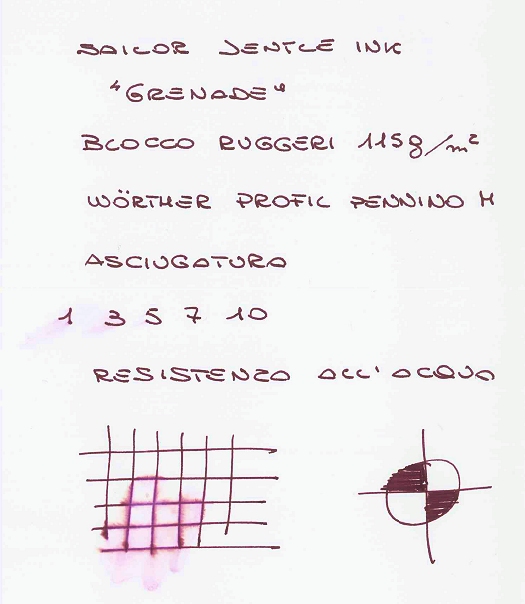 SAILOR JENTLE INK
"GRENADE"
BLOCCO RUGGERI 115g/m²
WÖRTHER PROFIL PENNINO M
ASCIUGATURA
1 3 5 7 10
RESISTENZA ALL'ACQUA